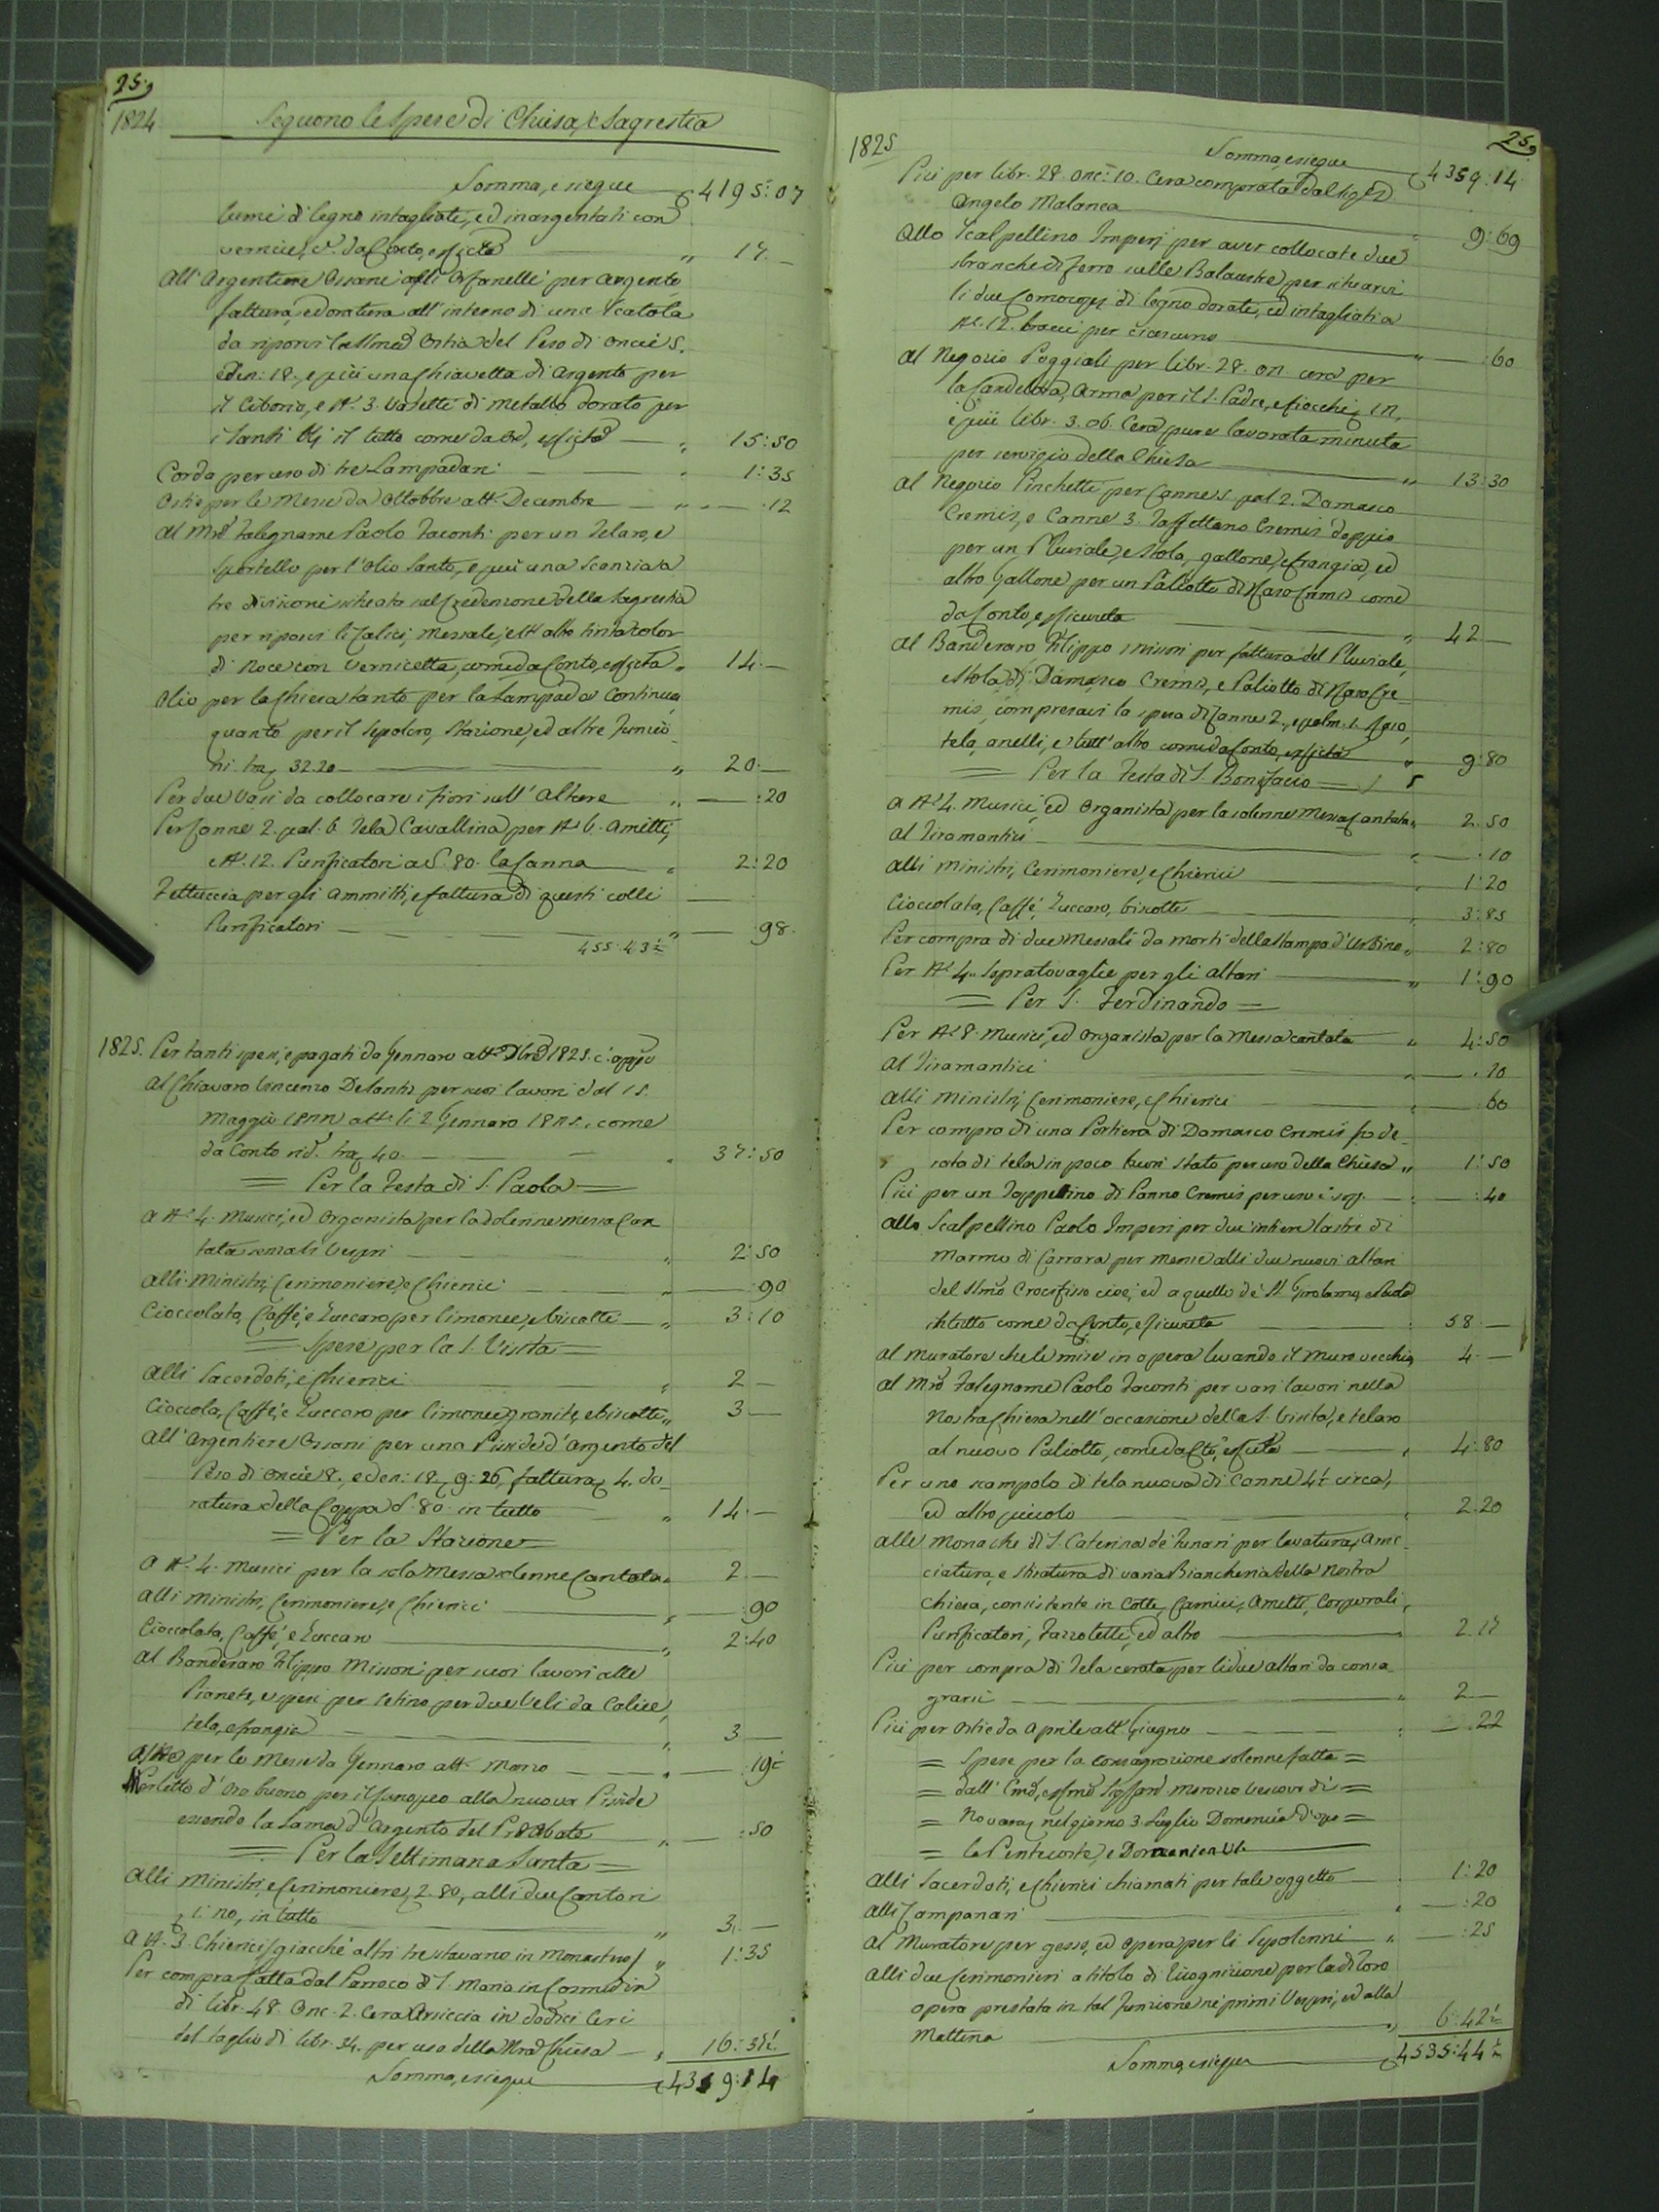 25
1824
Seguono le Spese di Chiesa, e Sagrestia
Somma, e siegue 4195:07
lumi di legno intagliate, ed inargentati con
vernice, da Conto, e ricta 17.—
All' Argentiere Ossani agli Orfanelli per argento
fattura, e doratura all' interno di una Scatola
da riporvi l'Ostia del Peso di oncie 5.
e den: 18., e più una chiavetta di argento per
il Ciborio, e N.° 3. Vasetti di Metallo dorato per
i Santi Olj il tutto come da 15:50
Corda per uso di tre Lampadari 1:35
Ostie per le Messe da Ottobbre att. Decembre :12
Al Mro Falegname Paolo Jaconti per un Telaro, e
Sportello per l'Olio Santo, e più una Scanzia a
tre divisioni situata sul Credenzone della Sagrestia
per riporvi li Calici, Messali, ed altro tinta color
di Noce con Vernicetta, come da Conto, e ricta 14.—
Olio per la Chiesa tanto per la Lampada continua,
quanto per il Sepolcro, Stazione, ed altre Funzio-
ni. 32.20 20.—
Per due Vasi da collocare i fiori sull' Altare :20
Per Canne 2. pal. 6 Tela Cavallina per N.° 6. Amitti,
e N.° 12. Purificatori a 80. la Canna 2:20
Fettuccia per gli Ammitti, e fattura di questi colli
Purificatori :98.
455:43½
1825. Per tanti spesi, e pagati da Gennaro att. Xbre 1825. c. appo
Al Chiavaro Vincenzo Desantis per suoi lavori dal 15.
Maggio att. li 2 Gennaro, come
da Conto rid. 40. 37:50
= Per la Festa di S. Paola =
A N.° 4. Musici, ed Organista per la solenne Messa Can
tata senza li Vespri 2:50
Alli Ministri, Cerimoniere, e Chierici :90
Cioccolata, Caffé, e Zuccaro per limonee, e biscotti 3:10
= Spese per la S. Visita =
Alli Sacerdoti, e Chierici 2—
Cioccola, Caffé, e Zuccaro per limonee granite, e biscotti 3—
All' Argentiere Ossani per una Pisside d'Argento del
Peso di oncie 8., e den: 18., 9:26, fattura 4. do-
ratura della Coppa 80. in tutto 14.—
= Per la Stazione =
A N.° 4. Musici per la sola Messa solenne Cantata 2.—
Alli Ministri, Cerimoniere, e Chierici :90
Cioccolata, Caffé, e Zuccaro 2:40
Al Banderaro Filippo Missoni per suoi lavori alle
Pianete, e spesi per Setino per due Veli da Calice,
tela, e frangia 3—
Ostie per le Messe da Gennaro att. Marzo :19½
Merletto d'oro buono per il alla nuova Pisside
essendo la Lama d'Argento del P. Abate :50
= Per la Settimana Santa =
Alli Ministri, e Cerimoniere, 2.80, alli due Cantori
in tutto 3.—
A N. 3. Chierici (giacché altri tre stavano in Monastero) 1:35
Per compra fatta dal Parroco di S. Maria in Cosmedin
di libr. 48. Onc. 2. Cera in dodici Ceri
del taglio di libr. 34. per uso della Nra Chiesa 16:
Somma, e siegue 4359:14
25
1825
Somma, e siegue 4359:14
Più per libr. 28. onc. 10. Cera comprata dal
Angelo Malanca 9:69
Allo Scalpellino Imperj per aver collocate due
branche di ferro sulle Balaustre per situarvi
li due di legno dorate, ed intagliati a
N.° 12. bracci per ciascuno :60
Al Negozio Poggioli per libr. 28. on. cera per
la Candelora, Arma per il S. Padre, e fiocchi,
e più libr. 3. 06. Cera pure lavorata minuta
per servigio della Chiesa 13:30
Al Negozio Pinchetti per Canne 5. pal. 2. Damasco
Cremis, e Canne 3. Taffettano Cremis doppio
per un Pluviale, e Stola, gallone, e frangia, ed
altro gallone per un Paliotto di Raso Cremis come
da Conto, e ricevuta 42—
Al Banderaro Filippo Missoni per fattura del Pluviale,
e Stola di Damasco Cremis, e Paliotto di Raso Cre-
mis, compresavi la spesa di Canne 2., e palm. 1. Raso,
tela, anelli, e tutt' altro come da Conto, e ricta 9:80
= Per la Festa di S. Bonifacio =
A N.° 4. Musici, ed Organista per la solenne Messa Cantata 2.50
Al Tiramantici :10
Alli Ministri, Cerimoniere, e Chierici 1:20
Cioccolata, Caffé, Zuccaro, biscotti 3:85
Per compra di due Messali da morti della Stampa d'Urbino 2:80
Per N.° 4. Sopratovaglie per gli altari 1:90
= Per S. Ferdinando =
Per N.° 8. Musici, ed Organista per la Messa cantata 4:50
Al Tiramantici :20
Alli Ministri, Cerimoniere, e Chierici :60
Per compra di una Portiera di Damasco Cremis fo de-
rata di tela in poco buono stato per uso della Chiesa 1:50
Più per un Tappettino di Panno Cremis per uso c. sop. :40
Allo Scalpellino Paolo Imperi per due intiere lastre di
Marmo di Carrara per Mense alli due nuovi altari
del SSmo Crocifisso cioè, ed a quello de' SS. Girolamo, e Paola
in tutto come da Conto, e ricevuta 58.—
Al Muratore che le mise in opera levando il Muro vecchio 4.—
Al Mro Falegname Paolo Jaconti per vari lavori nella
Nostra Chiesa nell' occasione della S. Visita, e telaro
al nuovo Paliotto, come da Cto, e ricta 4:80
Per uno scampolo di tela nuova di Canne 4½ circa,
ed altro piccolo 2.20
Alle Monache di S. Caterina de' Funari per lavatura, Ami-
ciatura, e stiratura di varia Biancheria della Nostra
Chiesa, consistente in Cotte, Camici, Amitti, Corporali,
Purificatori, Fazzoletti, ed altro 2.17
Più per compra di Tela cerata per li due altari da consa-
grarsi 2—
Più per Ostie da Aprile att. Giugno .22
= Spese per la Consagrazione solenne fatta =
= dall' Emo, e Rmo Sig. Card. Morozzo Vescovo di =
= Novara nel giorno 3. Luglio Domenica dopo =
= la Pentecoste, e Domenica
Alli Sacerdoti, e Chierici chiamati per tale oggetto 1:20
Alli Campanari :20
Al Muratore per gesso, ed opera per li Sepolcrini :25
Alli due Cerimonieri a titolo di ricognizione per la di loro
opera prestata in tal Funzione ne' primi Vespri, ed alla
Mattina 6:42½
Somma, e siegue 4535:44½